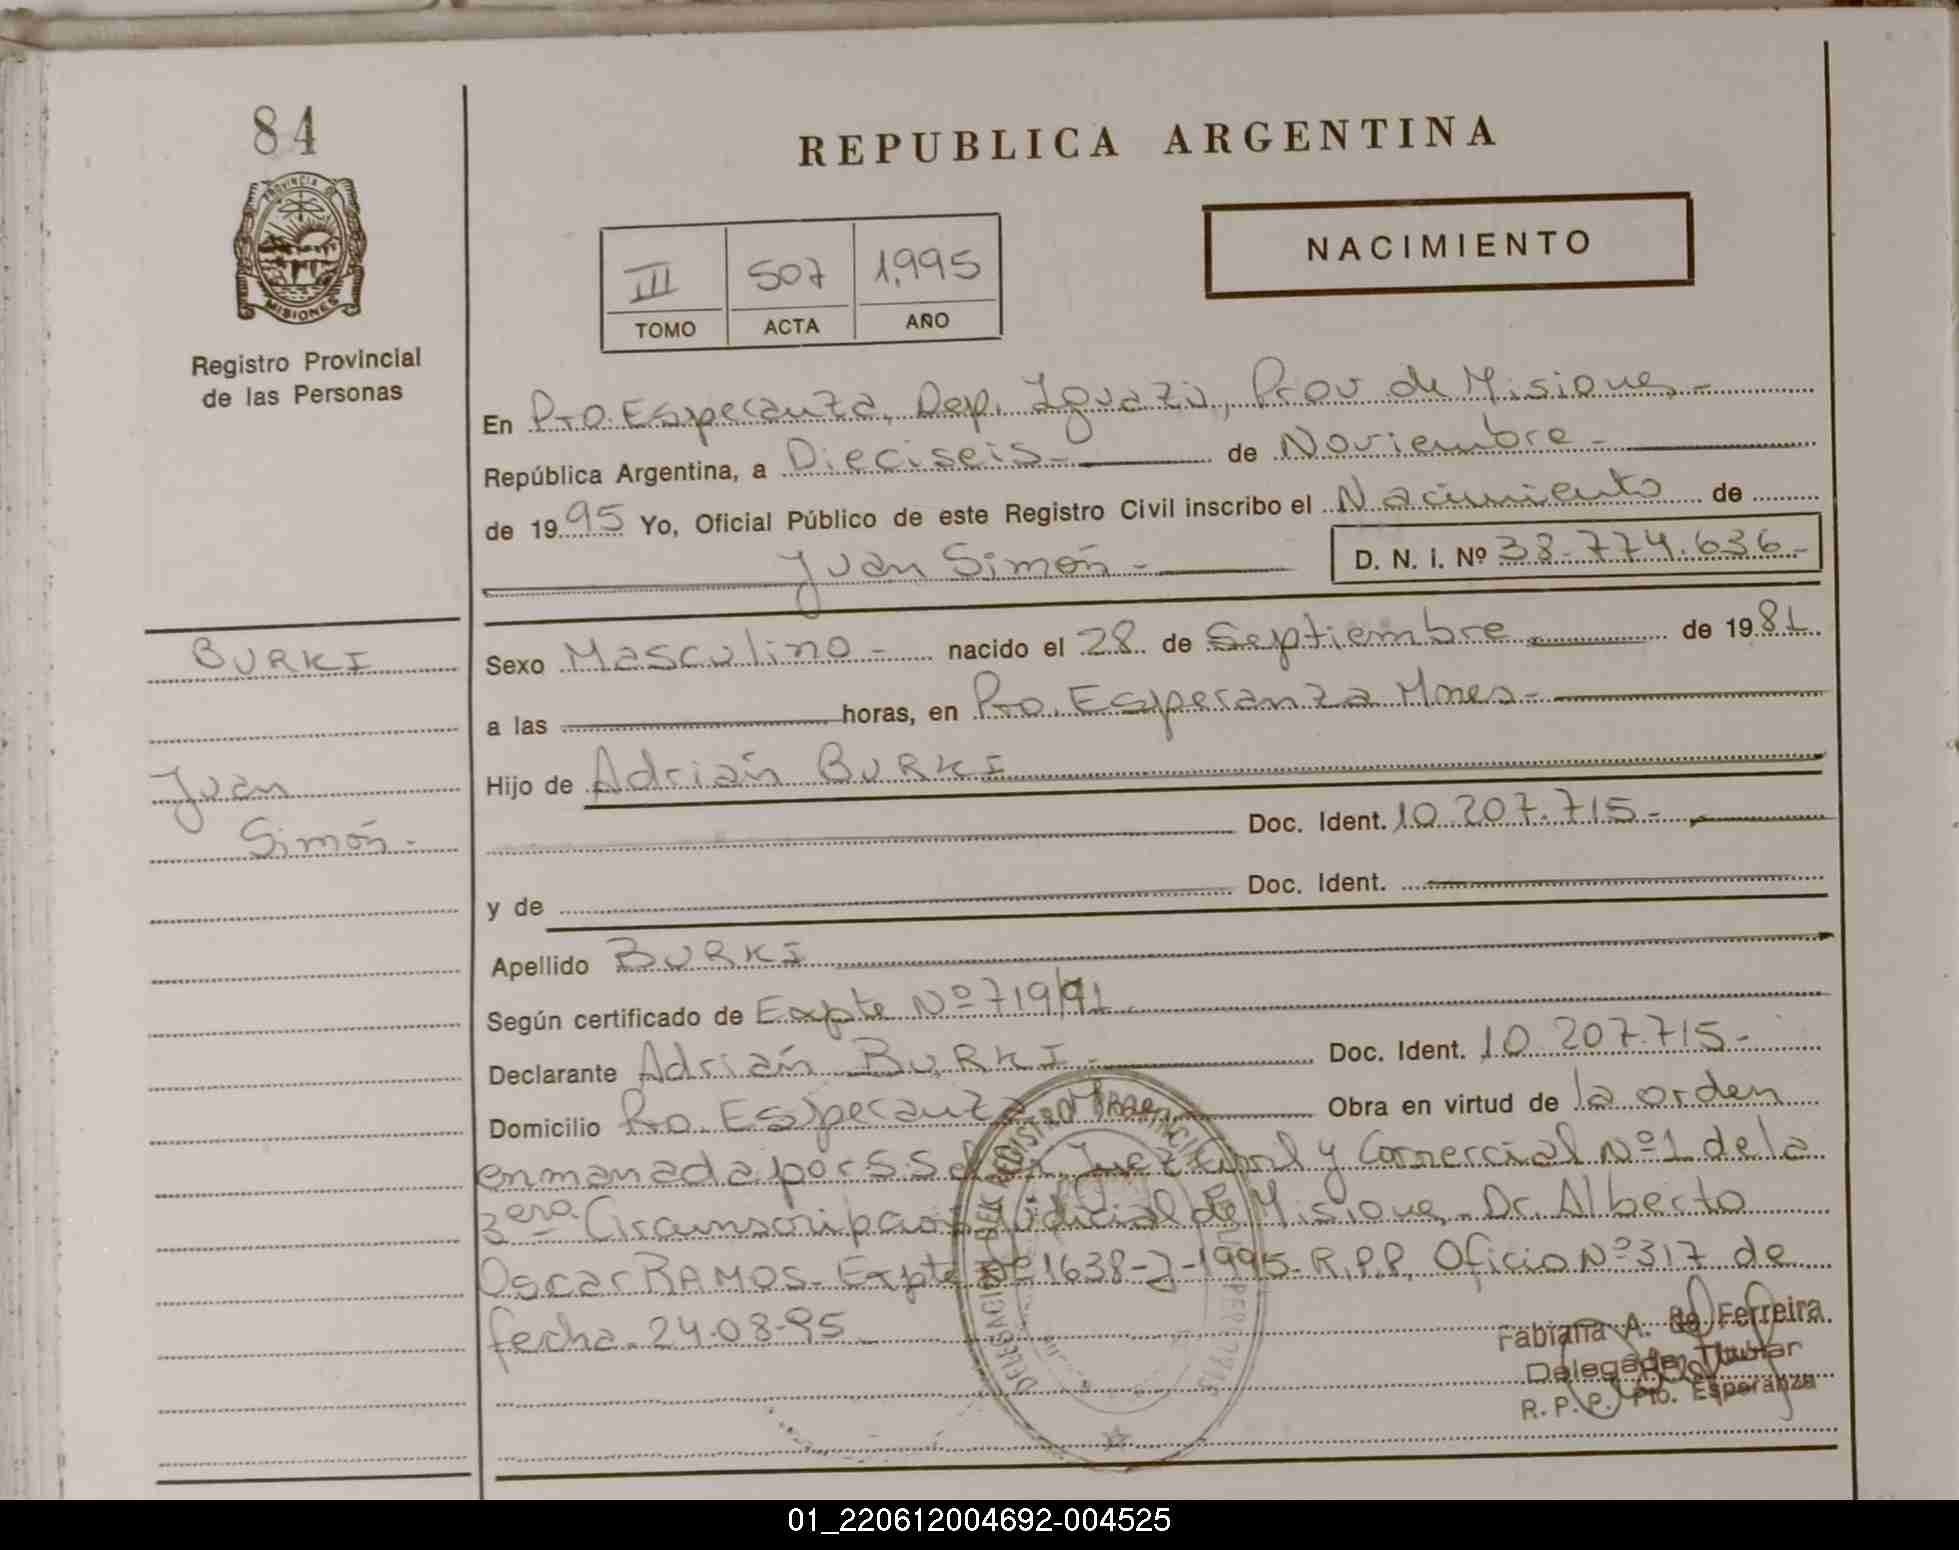 84
PROVINCIA DE
MISIONES
Registro Provincial
de las Personas
BURKI
Juan
Simón.-
REPUBLICA ARGENTINA
NACIMIENTO
III 507 1,995
TOMO ACTA AÑO
En Pto. Esperanza, Dep. Iguazú, Prov de Misiones.-
República Argentina, a Dieciseis.- de Noviembre.-
de 1995 Yo, Oficial Público de este Registro Civil inscribo el Nacimiento de
Juan Simón.- D. N. I. Nº 38.774.636.-
Sexo Masculino.- nacido el 28 de Septiembre de 1981.
a las horas, en Pto. Esperanza Mnes.-
Hijo de Adrián BURKI
Doc. Ident. 10.207.715.-
y de Doc. Ident.
Apellido BURKI
Según certificado de Expte Nº 719/91
Declarante Adrián BURKI.- Doc. Ident. 10.207.715.-
Domicilio Pto. Esperanza Mnes. Obra en virtud de la orden
enmanada por S.S. el Juez Civil y Comercial Nº 1 de la
3era. Circunscripción Judicial de Misiones. Dr. Alberto
Oscar RAMOS. Expte Nº 1638-J-1995. R.P.P. Oficio Nº 317 de
fecha 24.08.95
Fabiana A. de Ferreira
Delegada Titular
R. P. P. Pto. Esperanza
01_220612004692-004525